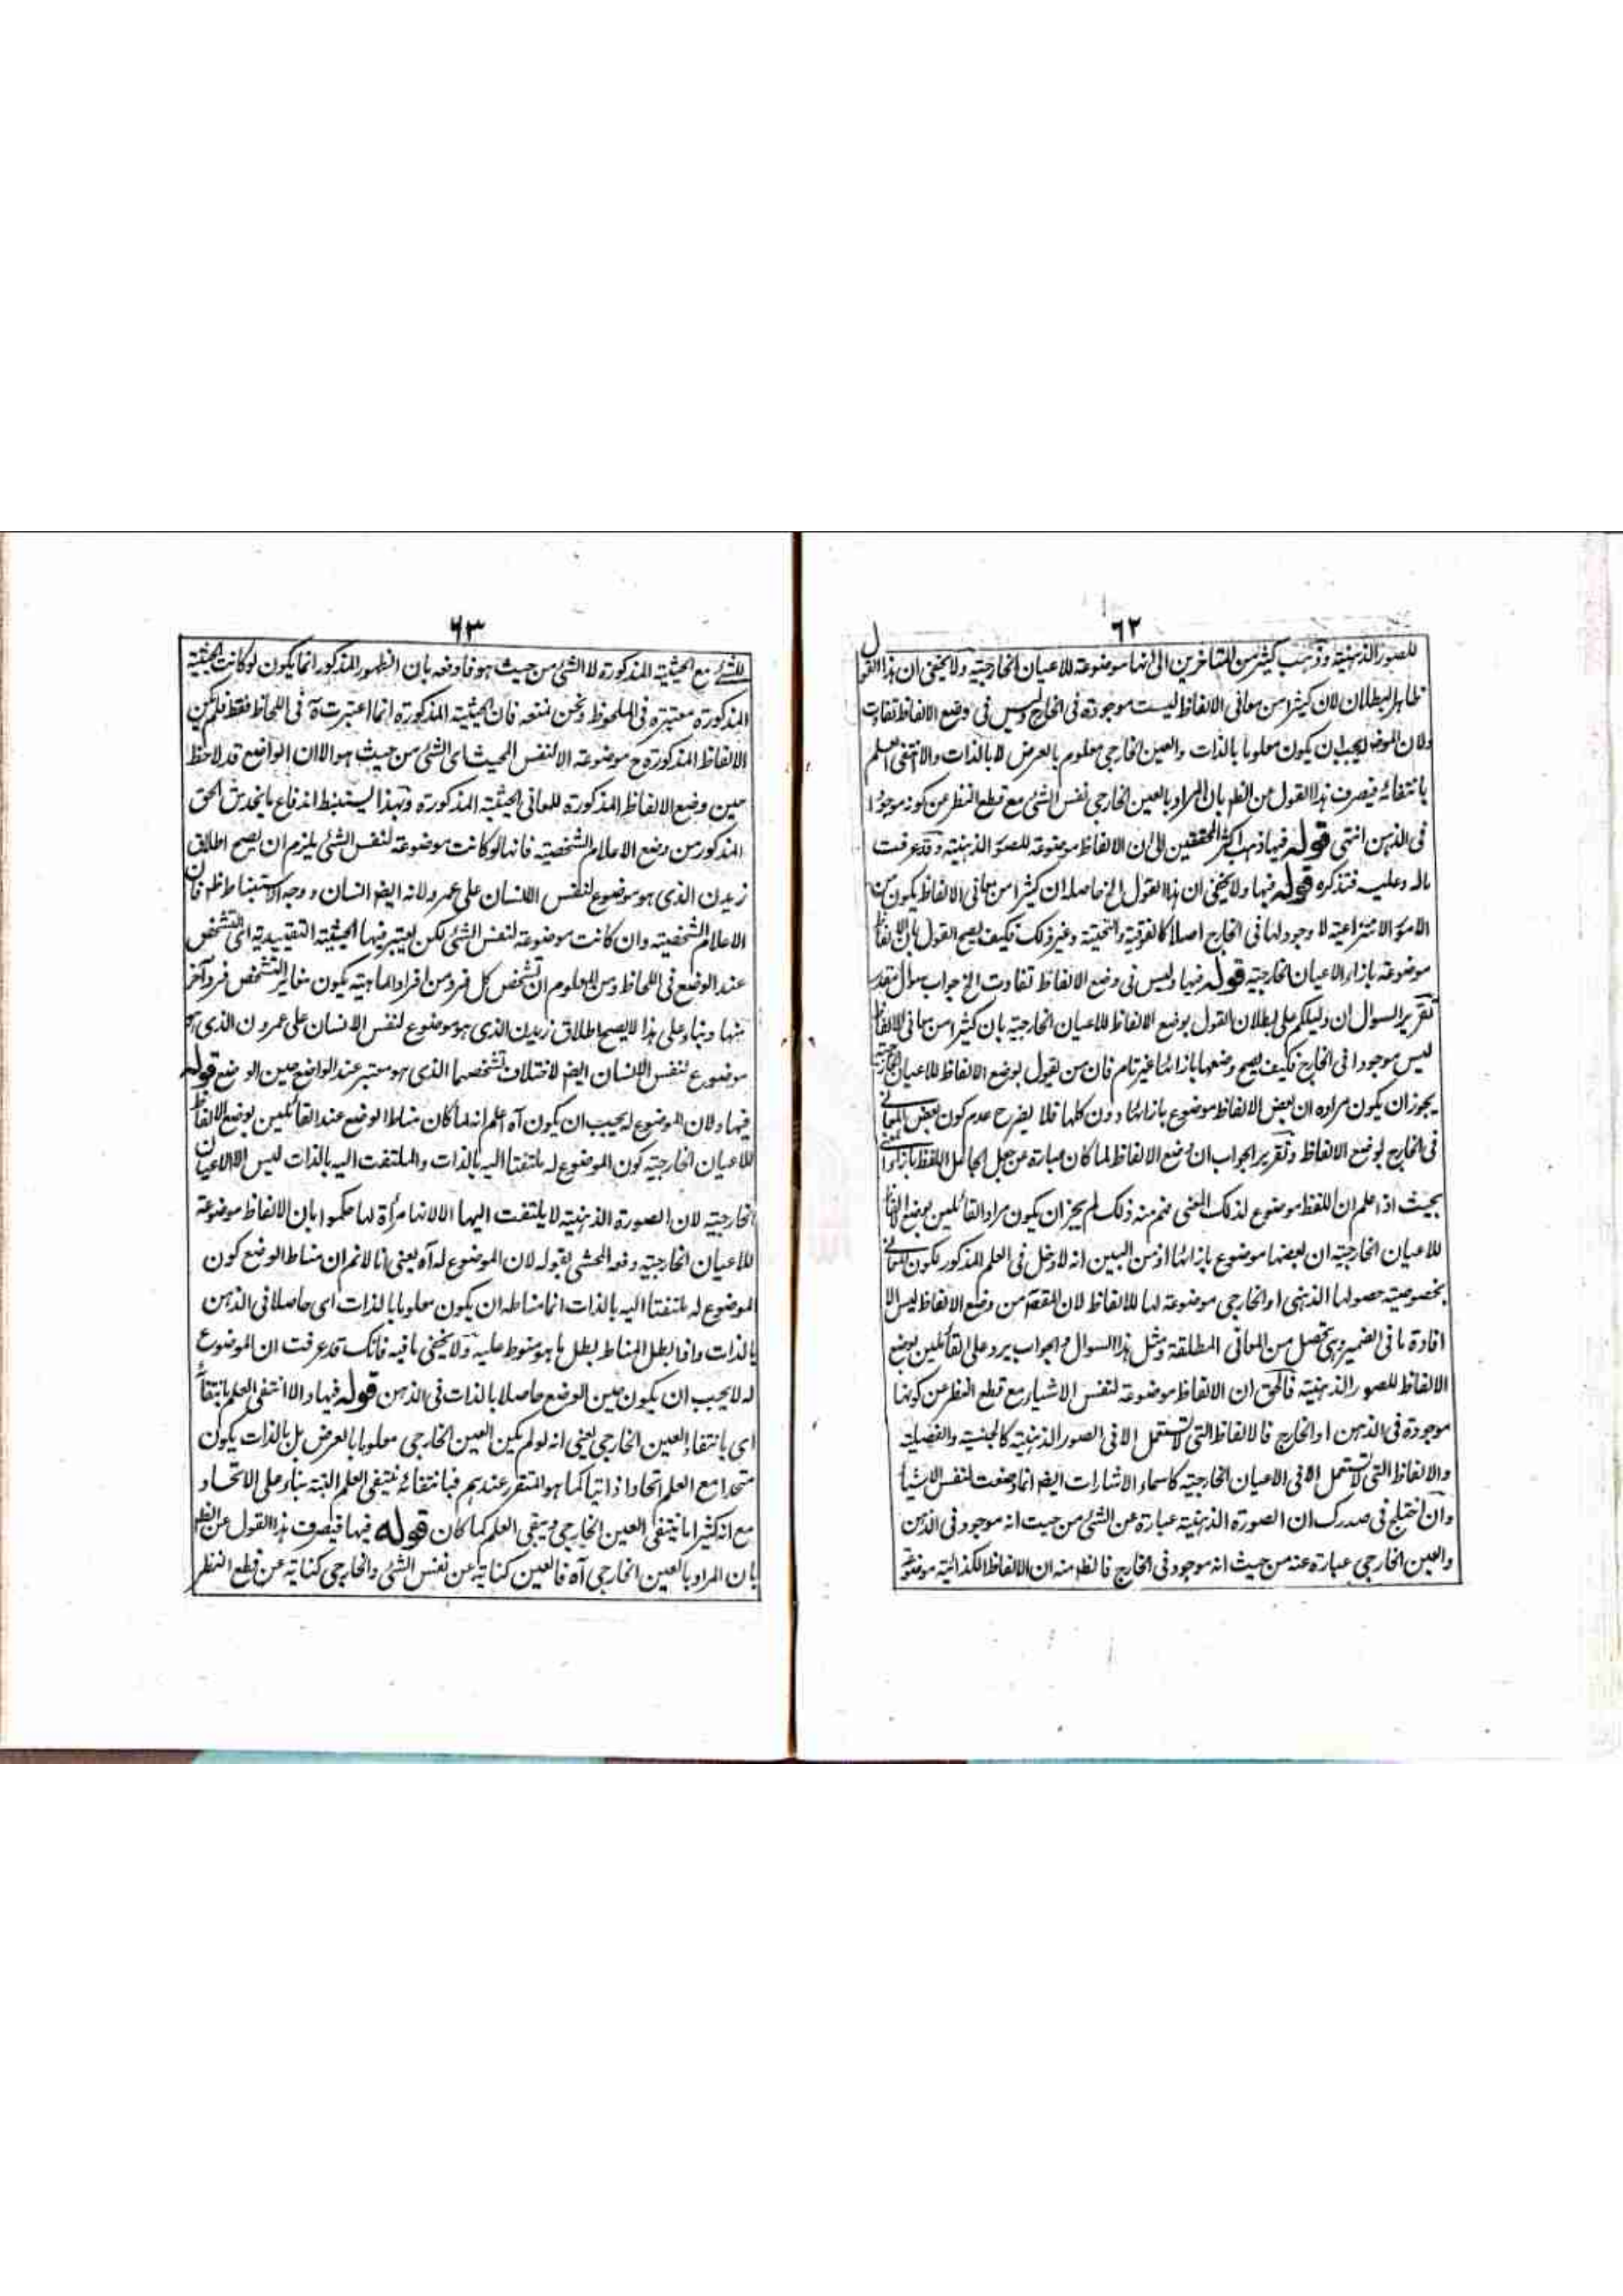 ٦٢
للصور الذهنية وذهب كثير من المتاخرين الى انها موضوعة للاعيان الخارجية ولا يخفى ان هذا القول
ظاهر البطلان لان كثيرا من معانى الالفاظ ليست موجودة فى الخارج وليس فى وضع الالفاظ تفاوت
ولان الموضوع له يجب ان يكون معلوما بالذات والعين الخارجى معلوم بالعرض لا بالذات والا انتفى العلم
بانتفائه فيصرف هذا القول عن الظ بان المراد بالعين الخارجى نفس الشئ مع قطع النظر عن كونه موجودا
فى الذهن انتهى قوله فيها ذهب اكثر المحققين الى ان الالفاظ موضوعة للصور الذهنية وقد عرفت
ماله وعليه فتذكره قوله فيها ولا يخفى ان هذا القول الخ حاصله ان كثيرا من معانى الالفاظ يكون من
الامور الانتزاعية لا وجود لها فى الخارج اصلا كالفوقية والتحتية وغير ذلك فكيف يصح القول بان الالفاظ
موضوعة بازاء الاعيان الخارجية قوله فيها وليس فى وضع الالفاظ تفاوت الخ جواب سوال مقدر
تقرير السوال ان دليلكم على بطلان القول بوضع الالفاظ للاعيان الخارجية بان كثيرا من معانى الالفاظ
ليس موجودا فى الخارج فكيف يصح وضعها بازائها غير تام فان من يقول بوضع الالفاظ للاعيان الخارجية
يجوز ان يكون مراده ان بعض الالفاظ موضوع بازائها دون كلها فلا يضرح عدم كون بعض المعانى
فى الخارج لوضع الالفاظ وتقرير الجواب ان وضع الالفاظ لما كان عبارة عن جعل الجاعل اللفظ بازاء المعنى
بحيث اذا علم ان اللفظ موضوع لذلك المعنى فهم منه ذلك لم يجز ان يكون مراد القائلين بوضع الالفاظ
للاعيان الخارجية ان بعضها موضوع بازائها اذ من البين انه لا دخل فى العلم المذكور لكون المعانى
بخصوصية حصولها الذهنى او الخارجى موضوعة لها للالفاظ لان المقصود من وضع الالفاظ ليس الا
افادة ما فى الضمير وهى تحصل من المعانى المطلقة ومثل هذا السوال والجواب يرد على القائلين بوضع
الالفاظ للصور الذهنية فالحق ان الالفاظ موضوعة لنفس الاشياء مع قطع النظر عن كونها
موجودة فى الذهن او الخارج فالالفاظ التى لا تستعمل الا فى الصور الذهنية كالجنسية والفصلية
والالفاظ التى لا تستعمل الا فى الاعيان الخارجية كاسماء الاشارات ايضا انما وضعت لنفس الاشياء
وان اختلج فى صدرك ان الصورة الذهنية عبارة عن الشئ من حيث انه موجود فى الذهن
والعين الخارجى عبارة عنه من حيث انه موجود فى الخارج فالظ منه ان الالفاظ الكذائية موضوعة
٦٣
للشئ مع الحيثية المذكورة لا الشئ من حيث هو فادفعه بان الظهور المذكور انما يكون لو كانت الحيثية
المذكورة معتبرة فى الملحوظ ونحن نمنعه فان الحيثية المذكورة انما اعتبرت فى اللحاظ فقط فلم يكن
الالفاظ المذكورة ح موضوعة الا لنفس المحيث اى الشئ من حيث هو الا ان الواضع قد لاحظ
حين وضع الالفاظ المذكورة للمعانى الحيثية المذكورة وبهذا يستنبط اندفاع ما يخدش الحق
المذكور من وضع الاعلام الشخصية فانها لو كانت موضوعة لنفس الشئ يلزم ان يصح اطلاق
زيدن الذى هو موضوع لنفس الانسان على عمرو لانه ايضا انسان ووجه الاستنباط ظ فان
الاعلام الشخصية وان كانت موضوعة لنفس الشئ لكن يعتبر فيها الحيثية التقييدية اى التشخص
عند الوضع فى اللحاظ ومن المعلوم ان تشخص كل فرد من افراد الماهية يكون مغاير التشخص فرد آخر
منها وبناء على هذا لا يصح اطلاق زيدن الذى هو موضوع لنفس الانسان على عمرون الذى هو
موضوع لنفس الانسان ايضا لاختلاف تشخصهما الذى هو معتبر عند الواضع حين الوضع قوله
فيها ولان الموضوع له يجب ان يكون آه اعلم انه لما كان مناط الوضع عند القائلين بوضع الالفاظ
للاعيان الخارجية كون الموضوع له ملتفتا اليه بالذات والملتفت اليه بالذات ليس الا الاعيان
الخارجية لان الصورة الذهنية لا يلتفت اليها الا لانها مرأة لها حكموا بان الالفاظ موضوعة
للاعيان الخارجية دفعه المحشى بقوله لان الموضوع له آه يعنى انا لا نم ان مناط الوضع كون
الموضوع له ملتفتا اليه بالذات انما مناطه ان يكون معلوما بالذات اى حاصلا فى الذهن
بالذات واذا بطل المناط بطل ما هو منوط عليه ولا يخفى ما فيه فانك قد عرفت ان الموضوع
له لا يجب ان يكون حين الوضع حاصلا بالذات فى الذهن قوله فيها والا انتفى العلم بانتفائه
اى بانتفاء العين الخارجى يعنى انه لو لم يكن العين الخارجى معلوما بالعرض بل بالذات يكون
متحدا مع العلم اتحادا ذاتيا كما هو المتقرر عندهم فبانتفائه ينتفى العلم البتة بناء على الاتحاد
مع انه كثيرا ما ينتفى العين الخارجى ويبقى العلم كما كان قوله فيها فيصرف هذا القول عن الظ
بان المراد بالعين الخارجى آه فالعين كناية عن نفس الشئ والخارجى كناية عن قطع النظر